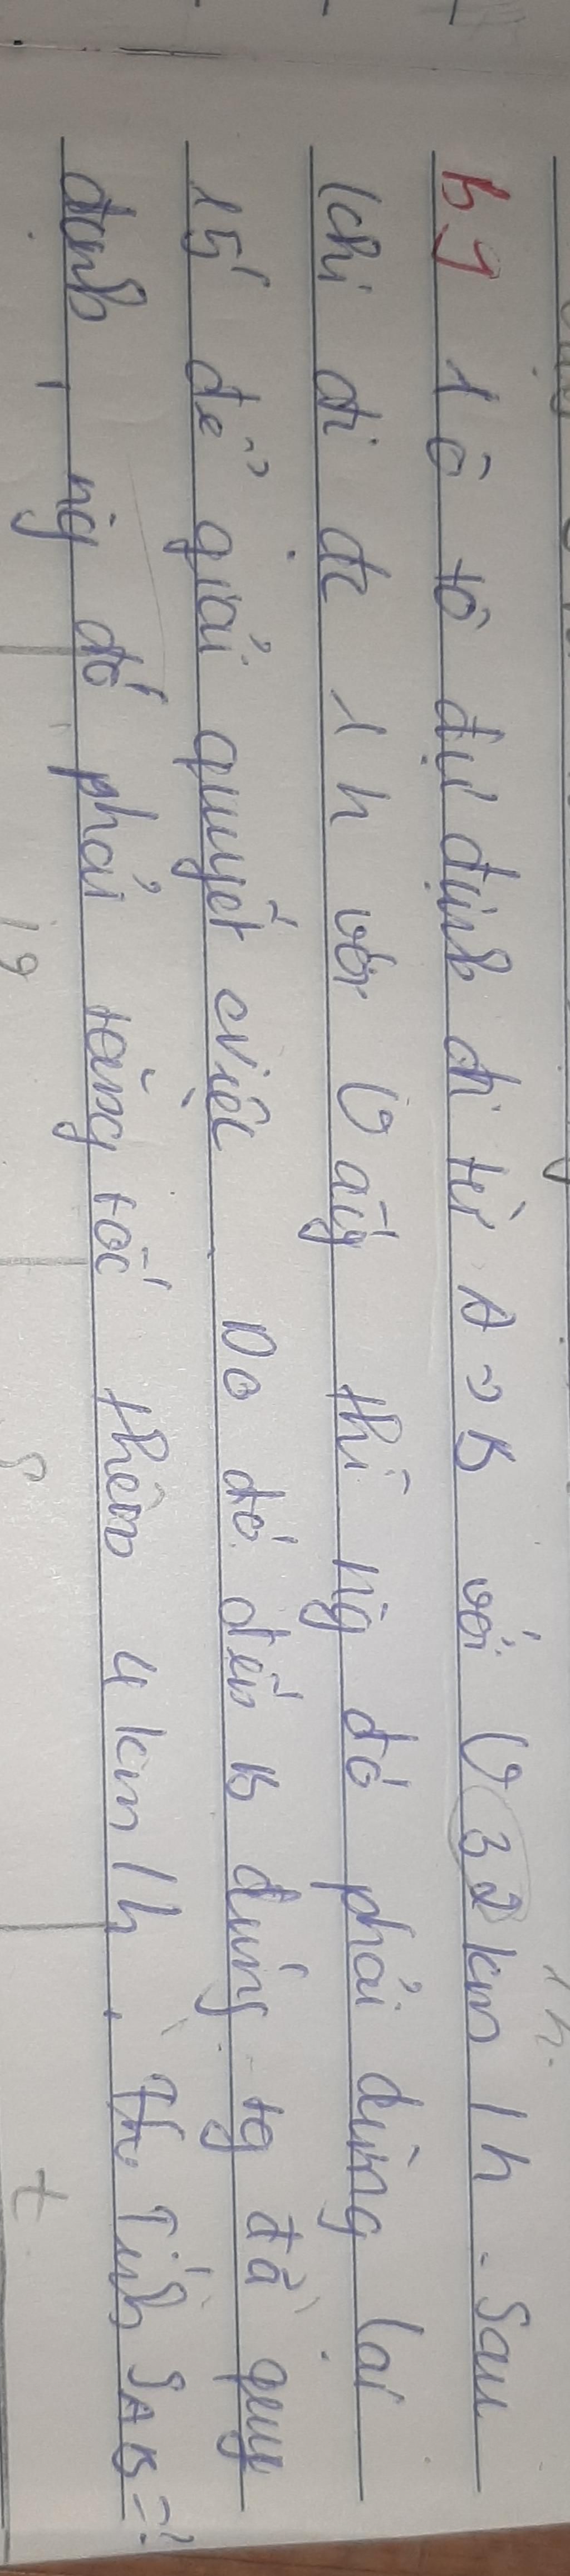 b9 1 ô tô dự định đi từ A → B với V 32 km/h. Sau
khi đi đc 1h với V ấy thì ng đó phải dừng lại
15' để giải quyết cviệc. Do đó đến B đúng tg đã quy
định, ng đó phải tăng tốc thêm 4 km/h. Tính SAB=?